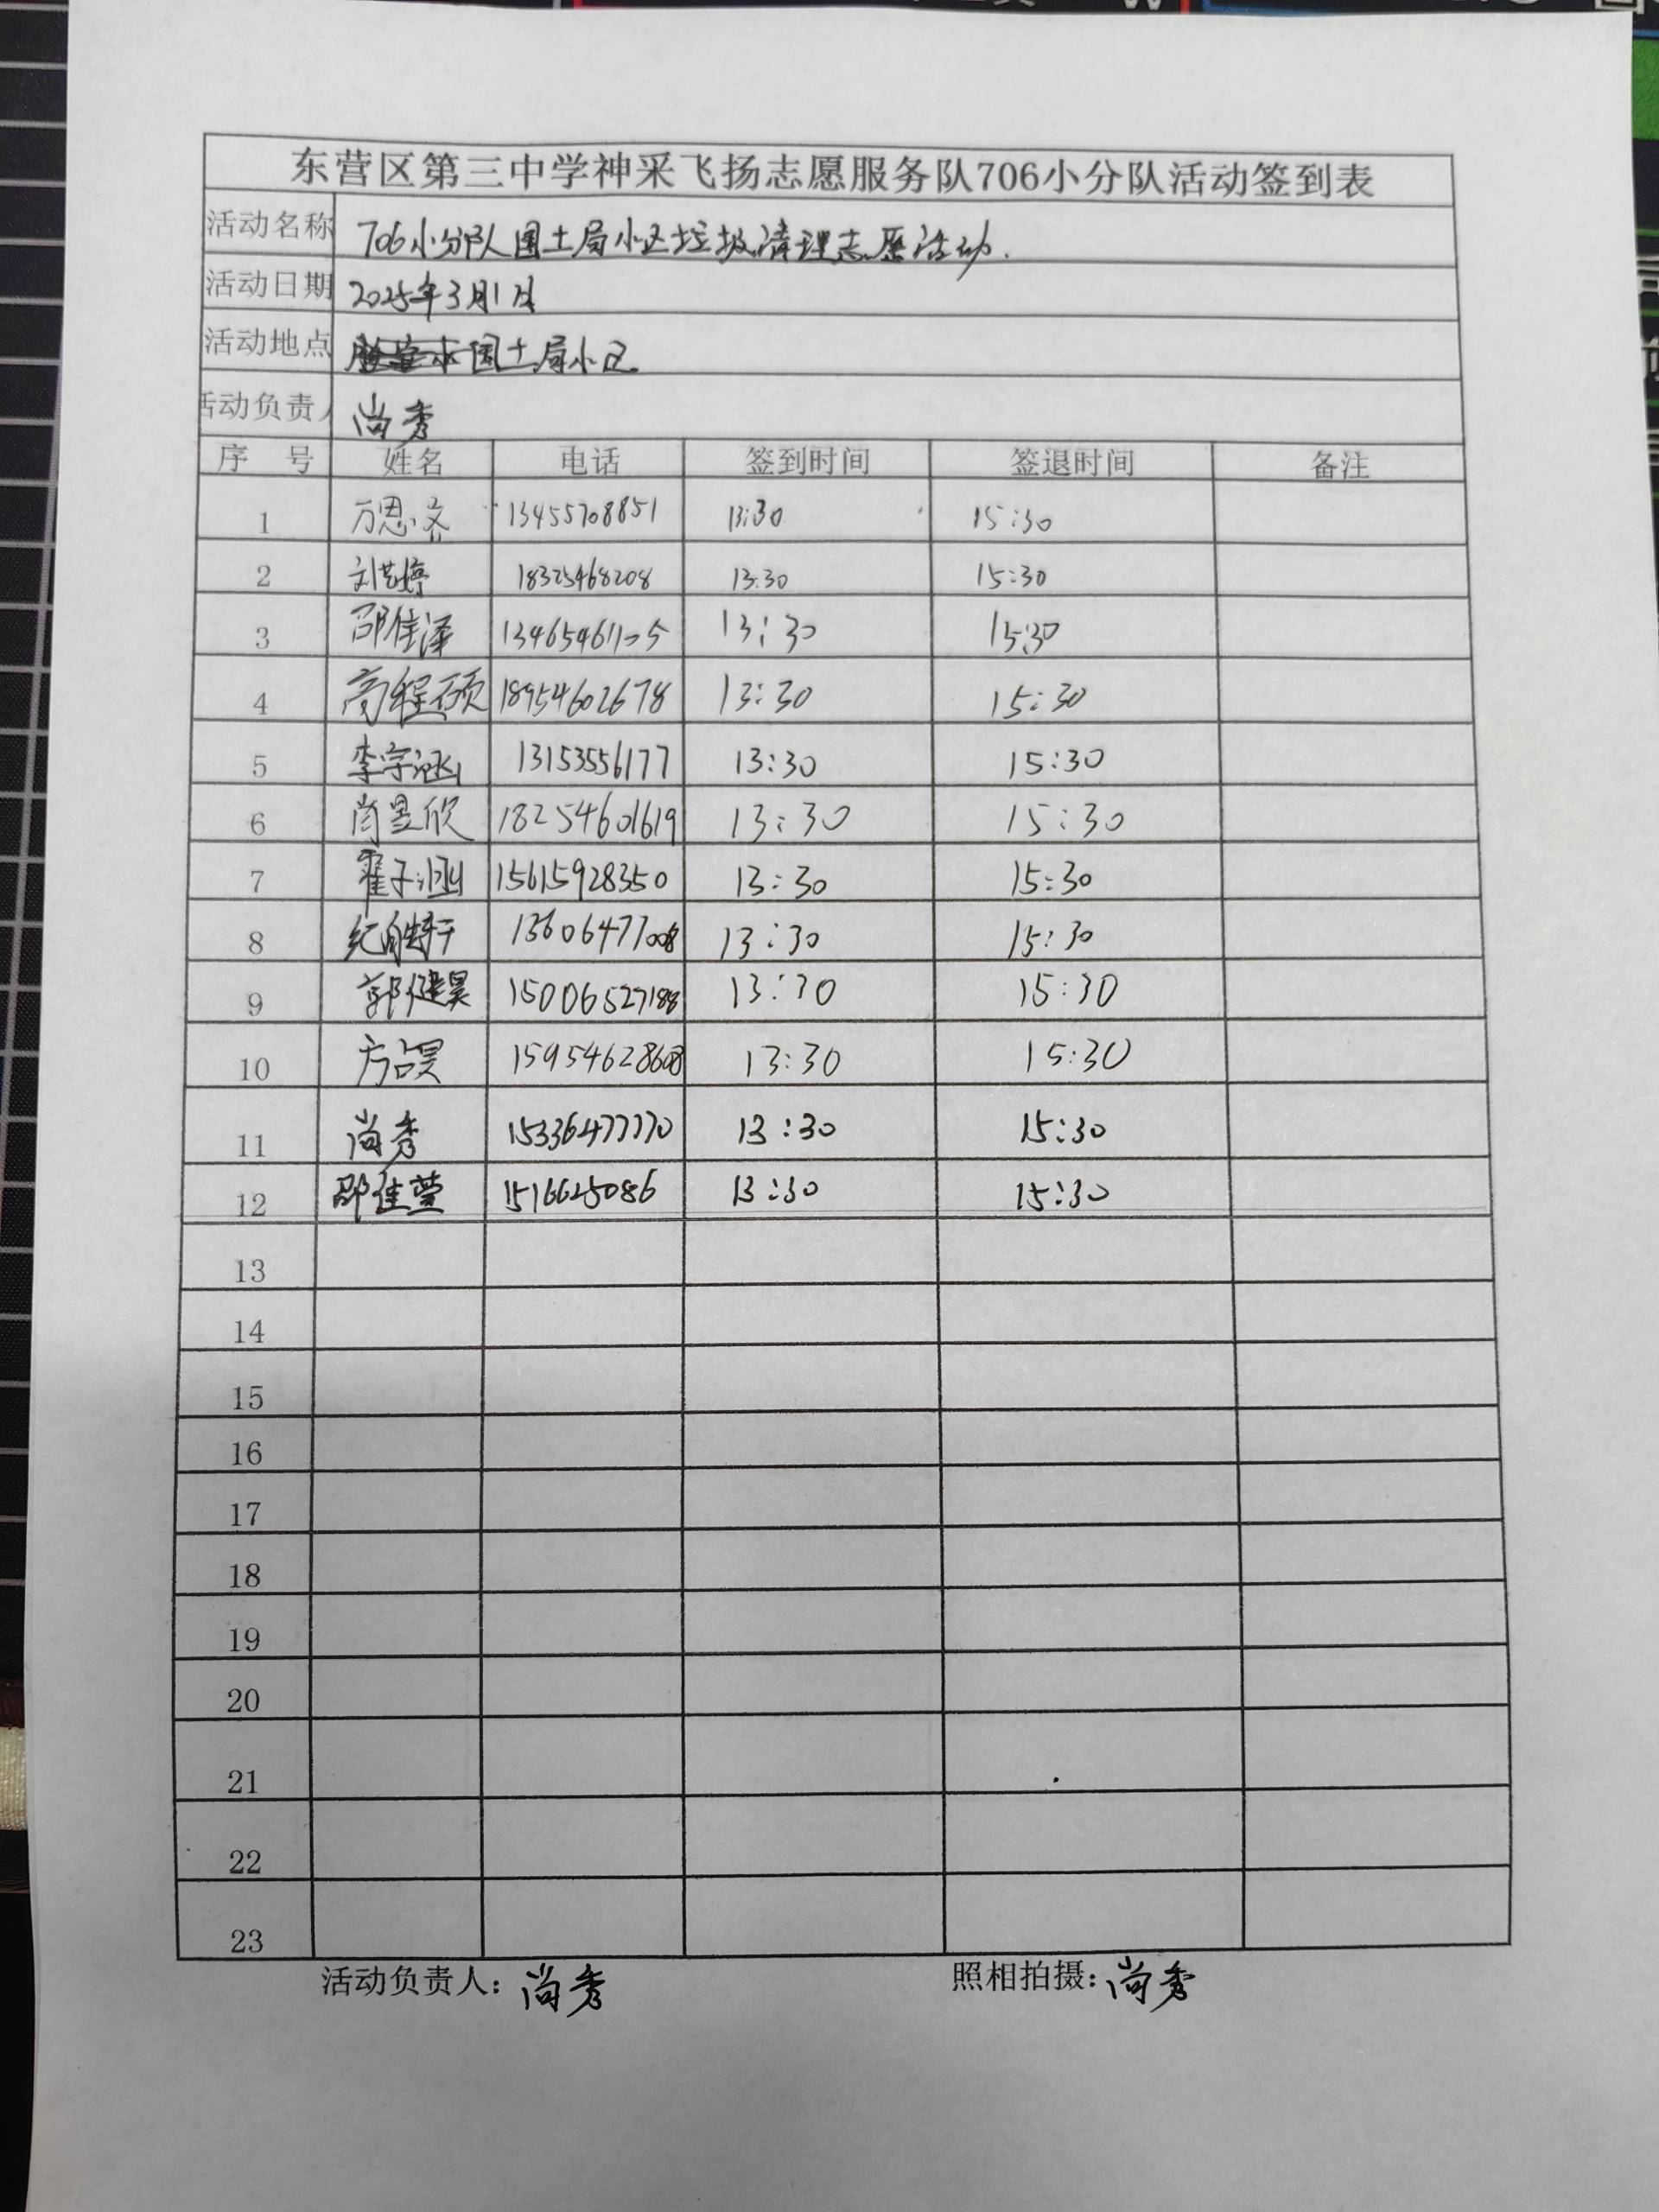 东营区第三中学神采飞扬志愿服务队706小分队活动签到表
活动名称 706小分队国土局小区垃圾清理志愿活动.
活动日期 2025年3月1日
活动地点 国土局小区
活动负责人 尚秀
序 号 姓名 电话 签到时间 签退时间 备注
1 万思齐 13455708851 13:30 15:30
2 刘艺婷 18325468208 13:30 15:30
3 邵佳泽 13:30 15:30
4 高程硕 18954602678 13:30 15:30
5 李宇涵 13153556177 13:30 15:30
6 尚昱欣 18254601619 13:30 15:30
7 霍子涵 15615928350 13:30 15:30
8 13606477008 13:30 15:30
9 郭健昊 15006527188 13:30 15:30
10 15954628608 13:30 15:30
11 尚秀 15336477770 13:30 15:30
12 邵佳萱 1516625086 13:30 15:30
13
14
15
16
17
18
19
20
21
22
23
活动负责人: 尚秀 照相拍摄: 尚秀